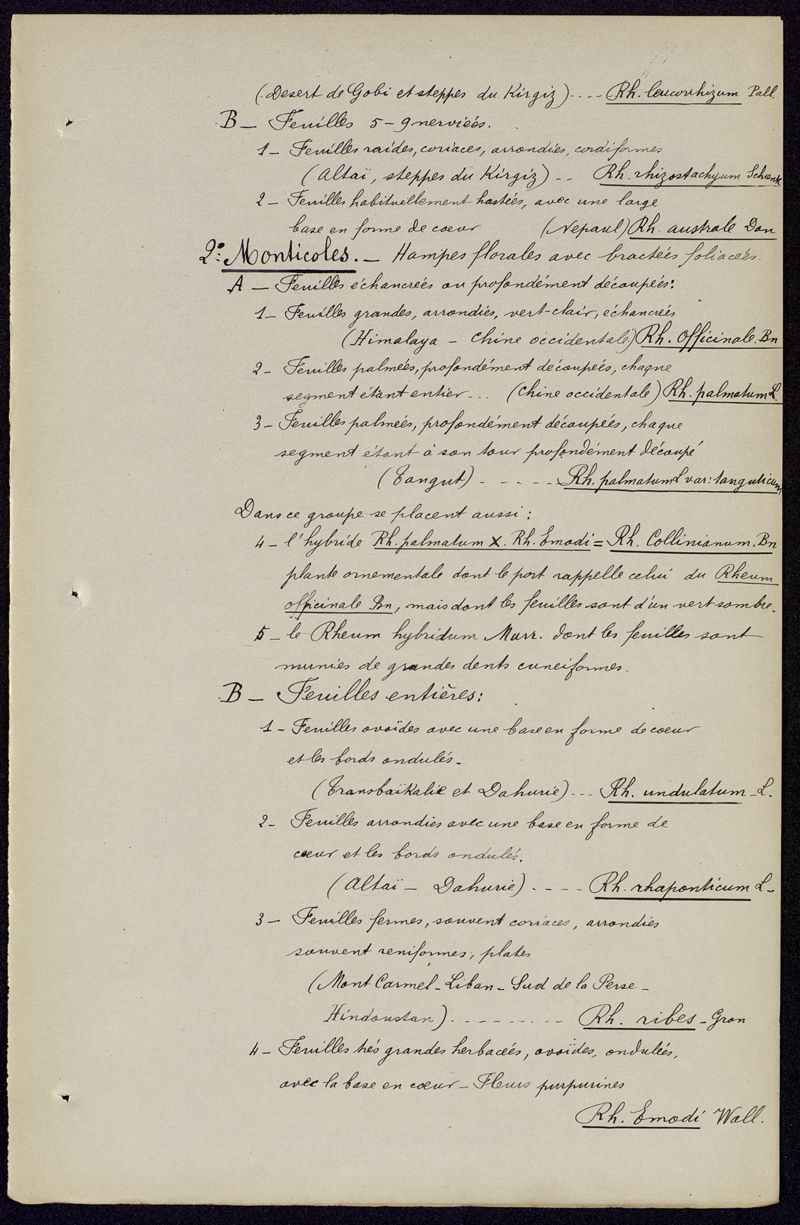 (Desert de Gobi et steppes du Kirgiz) ---- Rh. leucorrhizum Pall.
B — Feuilles 5-9 nervieés.
1 - Feuilles raides, coriaces, arrondies, cordiformes
(Altaï, steppes du Kirgiz) -- Rh. rhizostachyum Schrenk
2 - Feuilles habituellement hasteés, avec une large
base en forme de coeur (Nepaul) Rh. australe Don
2º Monticoles. — Hampes florales avec bracteés foliaceés
A — Feuilles échancreés ou profondément découpeés:
1 - Feuilles grandes, arrondies, vert-clair, échancreés
(Himalaya - Chine occidentale) Rh. officinale. Bn
2 - Feuilles palmeés, profondément découpeés, chaque
segment étant entier ... (Chine occidentale) Rh. palmatum L.
3 - Feuilles palmeés, profondément découpées, chaque
segment étant à son tour profondément découpé
(Tangut) - - - - - Rh. palmatum L var: tanguticum
Dans ce groupe se placent aussi:
4 - l'hybride Rh. palmatum X. Rh. Emodi = Rh. Collinianum. Bn
plante ornementale dont le port rappelle celui du Rheum
officinale Bn, mais dont les feuilles sont d'un vert sombre.
5 - le Rheum hybridum Murr. dont les feuilles sont
munies de grandes dents cuneiformes.
B — Feuilles entières:
1 - Feuilles ovoïdes avec une base en forme de coeur
et les bords ondulés.
(Transbaïkalie et Dahurie) --- Rh. undulatum - L.
2 - Feuilles arrondies avec une base en forme de
coeur et les bords ondulés.
(Altaï — Dahurie) . - - - Rh. rhaponticum L -
3 - Feuilles fermes, souvent coriaces, arrondies
souvent reniformes, plates
(Mont Carmel - Liban - Sud de la Perse -
Hindoustan) . - - - - - - - - Rh. ribes - Gron
4 - Feuilles trés grandes herbaceés, ovoïdes, onduleés,
avec la base en coeur - Fleurs purpurines
Rh. Emodi Wall.